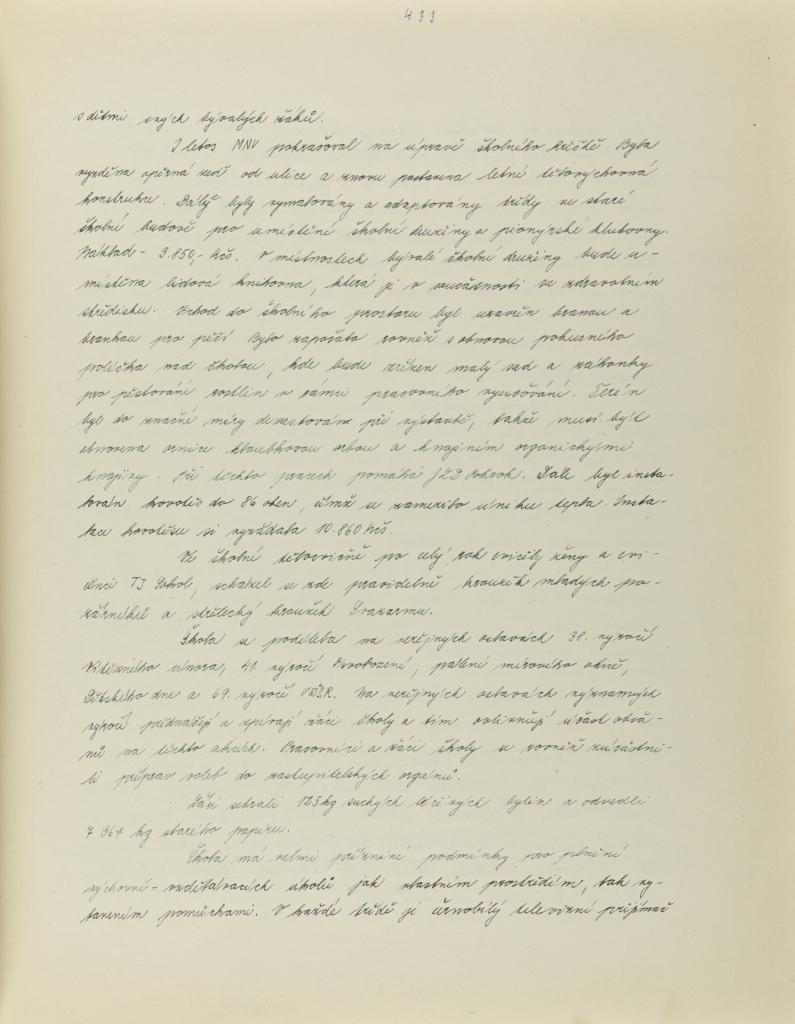 433
s dětmi svých bývalých žáků.
I letos MNV pokračoval na úpravě školního hřiště. Byla
vyzděna opěrná zeď od ulice a znovu postavena letní tělovýchovná
konstrukce. Dále byly vymalovány a adaptovány třídy ve staré
školní budově pro umístění školní družiny a pionýrské klubovny.
Náklad - 3.850,- Kčs. V místnostech bývalé školní družiny bude u-
místěna lidová knihovna, která je v současnosti ve zdravotním
středisku. Vchod do školního prostoru byl uzavřen branou a
brankou pro pěší. Bylo započato rovněž s obnovou pokusného
políčka nad školou, kde bude zřízen malý sad a záhonky
pro pěstování rostlin v rámci pracovního vyučování. Terén
byl do značné míry devastován při výstavbě, takže musí být
obnovena ornice hloubkovou orbou a hnojením organickými
hnojivy. Při těchto pracech pomáhá JZD Pokrok. Dále byl insta-
lován kovotěs do 86 oken, čímž se zamezilo úniku tepla. Insta-
lace kovotěsu si vyžádala 10.860 Kčs.
Ve školní tělocvičně po celý rok cvičily ženy a cvi-
čenci TJ Sokol, scházel se zde pravidelně kroužek mladých po-
žárníků a střelecký kroužek Svazarmu.
Škola se podílela na veřejných oslavách 38. výročí
Vítězného února, 41. výročí Osvobození, pálení mírového ohně,
Dětského dne a 69. výročí VŘSR. Na veřejných oslavách významných
výročí přednášejí a zpívají žáci školy a tím ovlivňují účast obča-
nů na těchto akcích. Pracovníci a žáci školy se rovněž zúčastni-
li příprav voleb do zastupitelských orgánů.
Žáci sebrali 125 kg suchých léčivých bylin a odvedli
7 364 kg starého papíru.
Škola má velmi příznivé podmínky pro plnění
výchovně-vzdělávacích úkolů jak vlastním prostředím, tak vy-
bavením pomůckami. V každé třídě je černobílý televizní přijímač